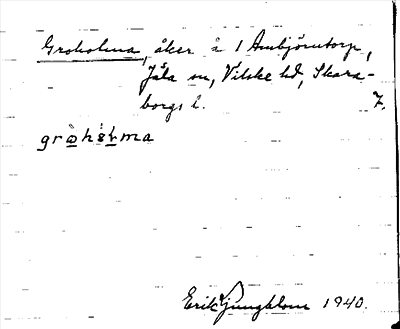 Groholma, åker å 1 Ambjörntorp,
Jäla sn, Vilske hd, Skara-
borgs l. 7.
gròhòlma
Erik Ljungblom 1940.